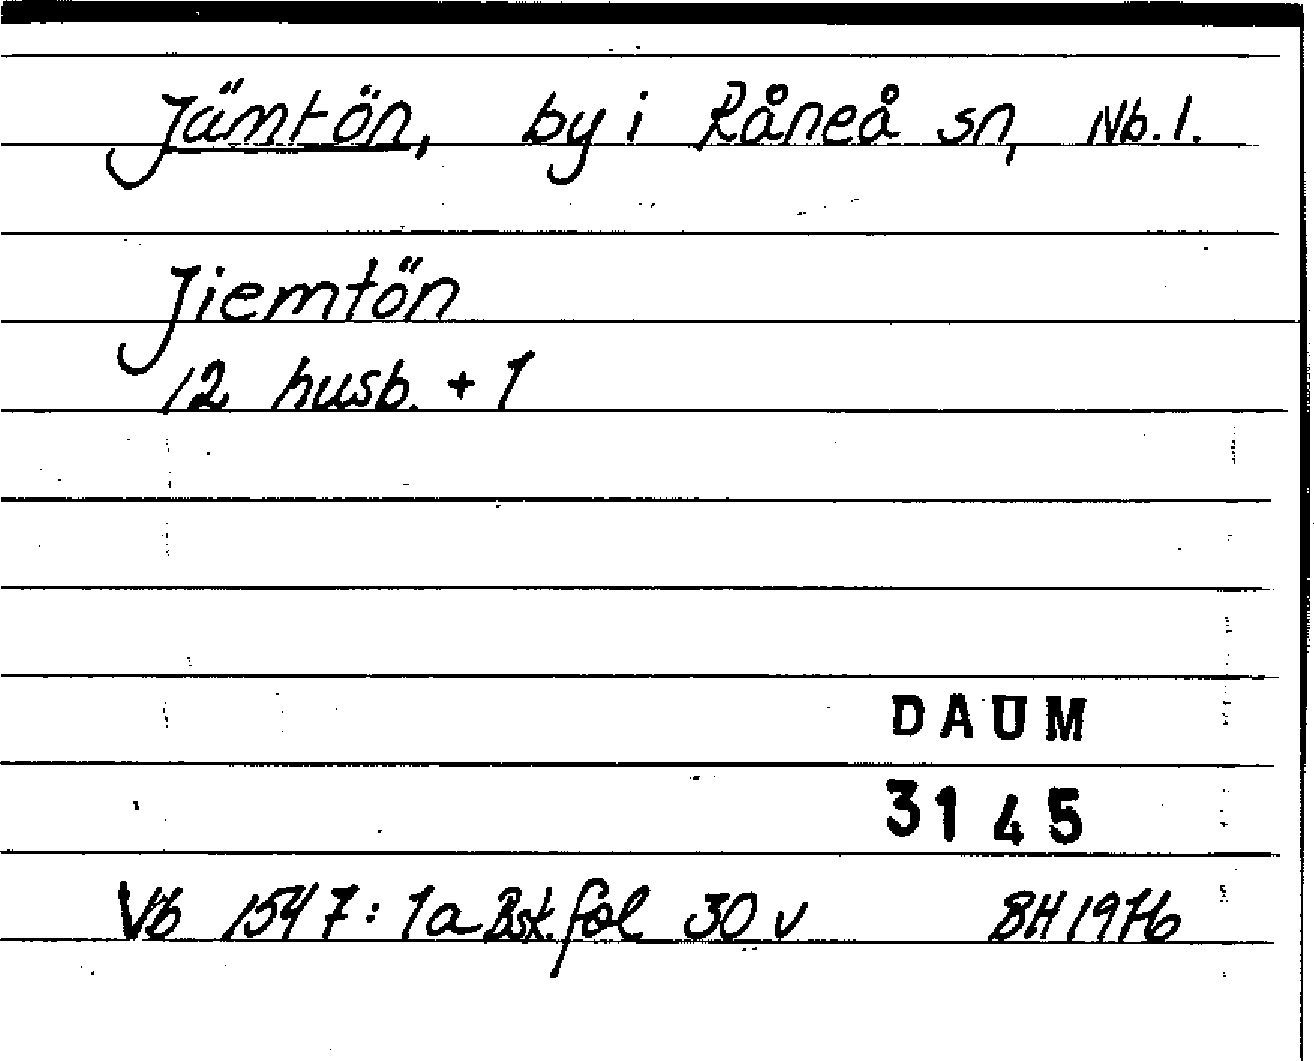 Jämtön, by i Råneå sn, Nb. l.
Jiemtön
12 husb. + 1
DAUM
3145
Vb 1547: 1a Bsk. fol 30 v BH 1976